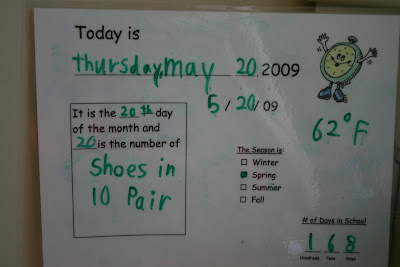 Today is
thursday, may 20, 2009
5 / 20 / 09
It is the 20 th day
of the month and
20 is the number of
Shoes in
10 Pair
62°F
The Season is:
Winter
Spring
Summer
Fall
# of Days in School
1 6 8
Hundreds Tens Ones